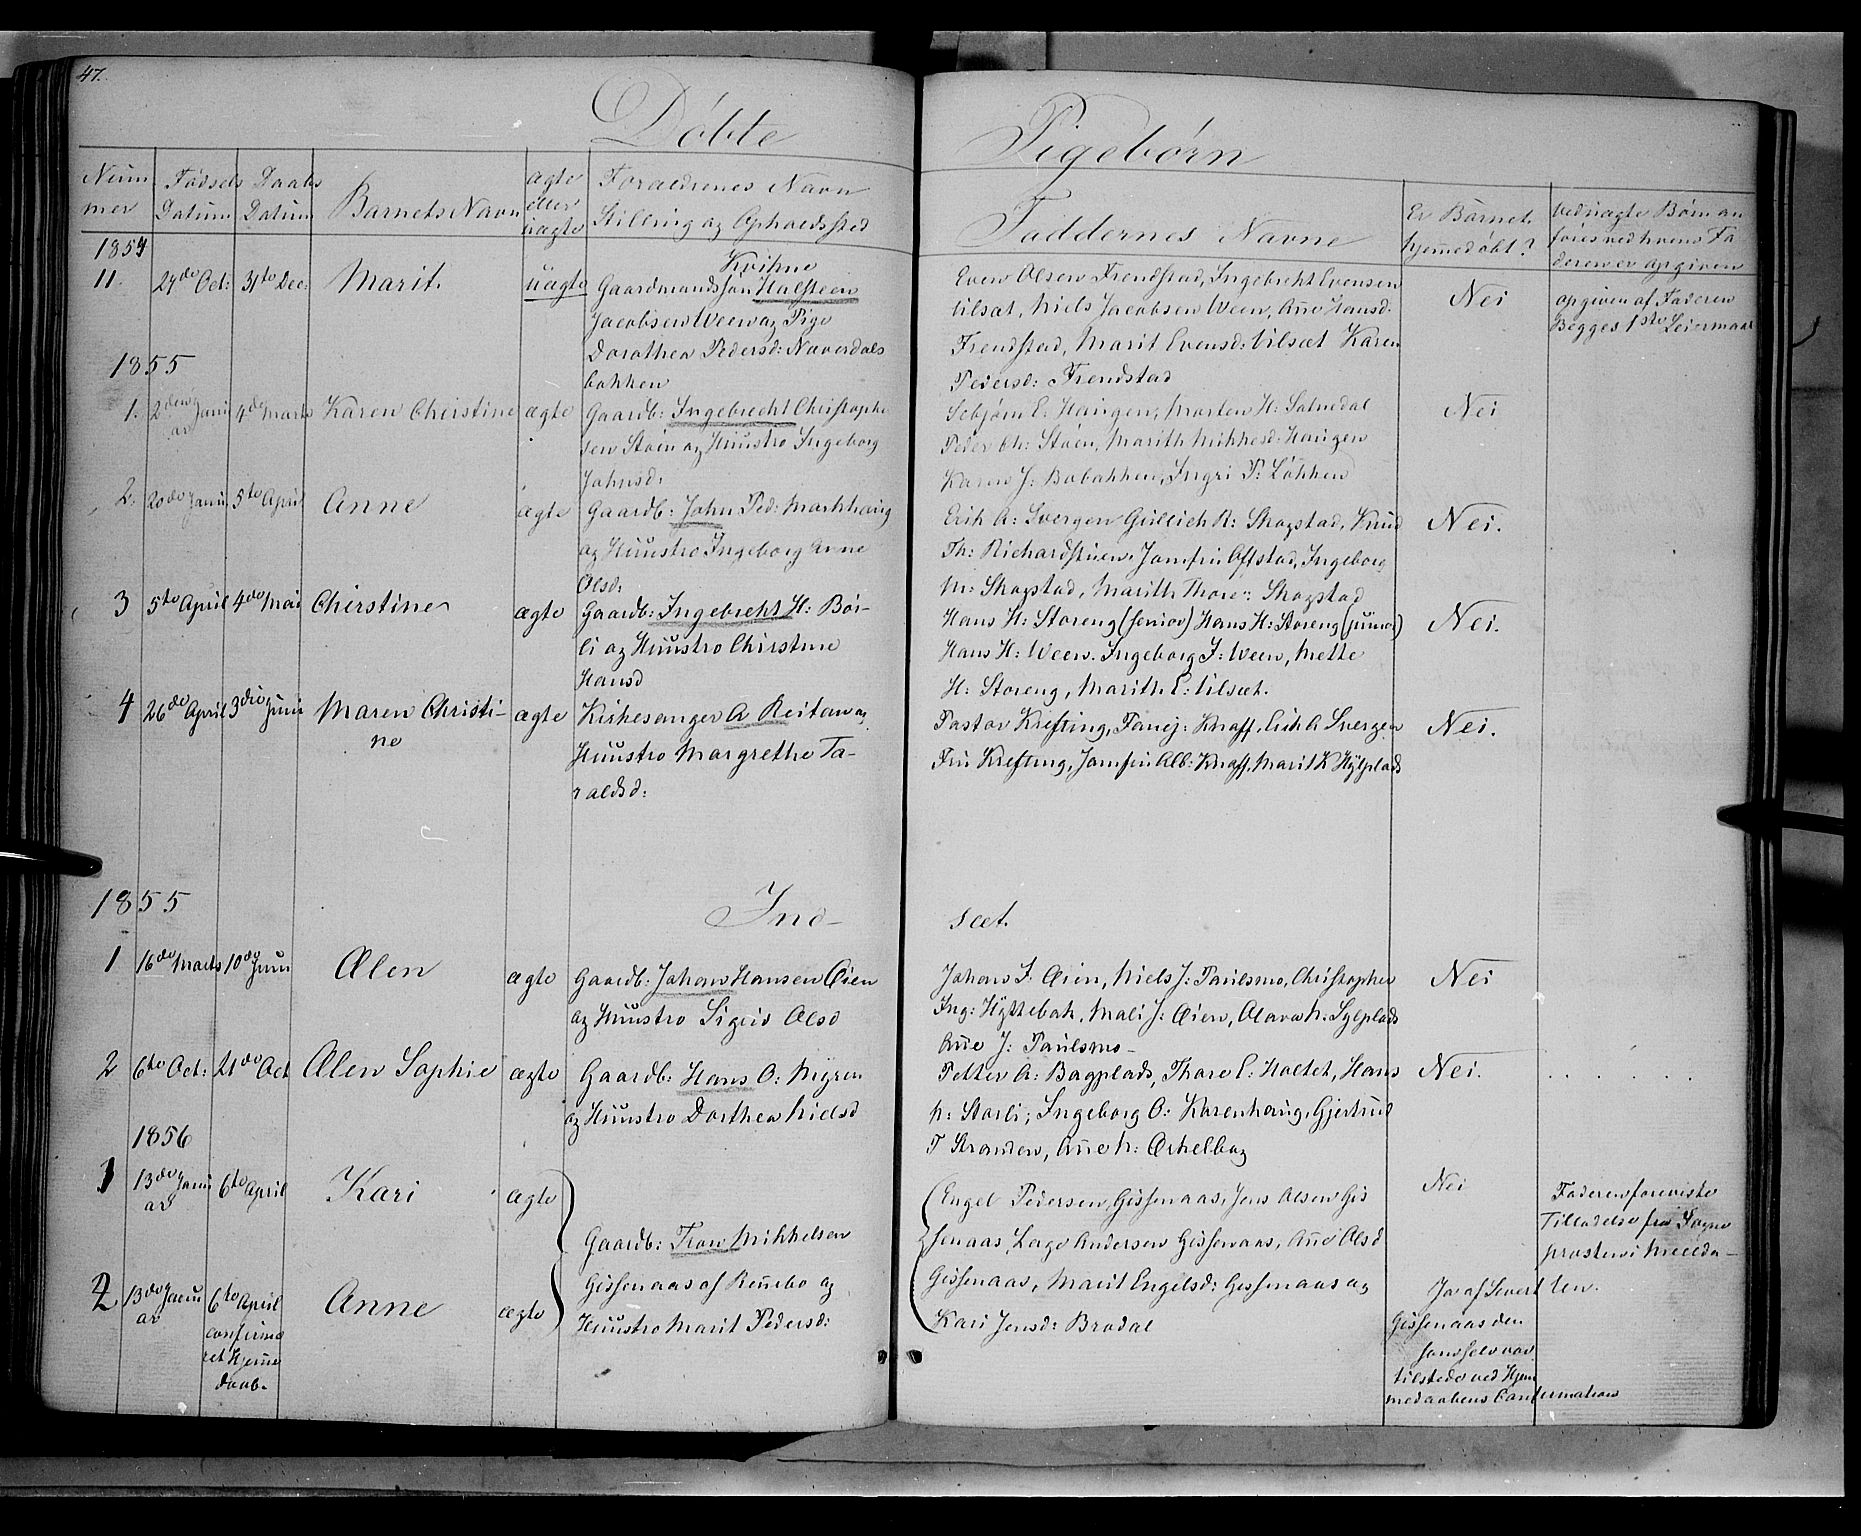 47.
Döbte Pigebørn
Num mer
Fødsels Datum
Daabs Datum
Barnets Navn
ægte eller uægte
Forældrenes Navn
Stilling og Opholdssted
Faddernes Navne
Er Barnet
hjemedöbt?
Ved uægte Börn an
föres ved hvem Fa
deren er opgiven
1854
Kvikne
11. 27de Oct: 31te Dec: Marit. uægte
Gaardmandssön Halsteen
Jacobsen Ween og Pige
Dorothea Pedersd: Naverdals
bakken
Even Olsen Frendstad, Ingebrekt Evensen
Vilsæt, Niels Jacobsen Ween, Ane Hansd:
Frendstad, Marit Evensd: Vilsæt Karen
Pedersd: Frendstad
Nei
opgiven af Faderen
Begges 1ste Leiermaal
1855
1. 2den Janu ar 4de Marts Karen Chirstine ægte
Gaardb: Ingebrecht Christophe
sen Stöen og Huustro Ingeborg
Johnsd.
Esbjörn E: Haugen, Morten H: Satnedal
Peder Ch: Stöen, Marith Mikkelsd: Haugen
Karen J: Bubakken, Ingri P: Løkken
Nei
2. 20de Janu 5te April Anne ægte
Gaardb: John Ped: Markhaug
og Huustro Ingeborg Anne
Olsd.
Erik A: Svergen Gullich R: Skogstad, Knud
Th: Richardstuen, Jomfru Offstad, Ingeborg
M: Skogstad, Marith Thores: Skogstad
Nei.
3 5te April 4de Mai Chirstine ægte
Gaardb: Ingebrecht H: Bör-
li og Huustro Chirstine
Hansd
Hans H: Storeng (senior) Hans H: Storeng (junior)
Hans H: Ween. Ingeborg J: Ween, Mette
H: Storeng, Marith E: Vilsæt.
Nei.
4 26de April 3die Juni Maren Christi-
ne ægte
Kirkesanger A Reitan og
Huustro Margrethe Ta-
raldsd:
Pastor Krefting, Knoff, Erik A Svergen
Fru Krefting, Jomfru Alb: Knoff, Marit K Hylplads
Nei.
1855
Ind-
sæt.
1 16de Marts 10de Juni Ælen ægte
Gaardb: Johans Hansen Øien
og Huustro Sigrid Olsd
Johans J. Øien, Niels J: Paulsmo, Christopher
Ing: Hyttebak, Mali J: Øien, Olava N: Sylplads
Ane J: Paulsmo-
Nei
2 6te Oct: 21de Oct Ælen Sophie ægte
Gaardb: Hans O: Myren
og Huustro Dorthea Nielsd
Petter A: Bagplads, Thore E: Holtet, Hans
N: Storli, Ingeborg O: Karenhaug, Gjertrud
T Stranden, Ane N: Orkelbog
Nei.
1856
1 13de Janu
ar 6te April Kari ægte
Gaardb: Tron Mikkelsen
Gissenaas af Rennebo og
Huustro Marit Pedersd:
Engel Pedersen Gissenaas, Jens Olsen Gis
senaas, Lage Andersen Gissenaas, Ane Olsd
Gissenaas, Marit Engelsd: Gissenaas og
Kari Jensd: Brodal
Nei
Faderen foreviste
Tilladelse fra Sogne
presten i Meelda-
len.
2 13de Janu
ar 6te April
confirme
ret Hjemme
daab.
Anne ægte
Ja af Sivert
Gissenaas den
som selv var
tilstede ved Hjem
medaabens Confirmation